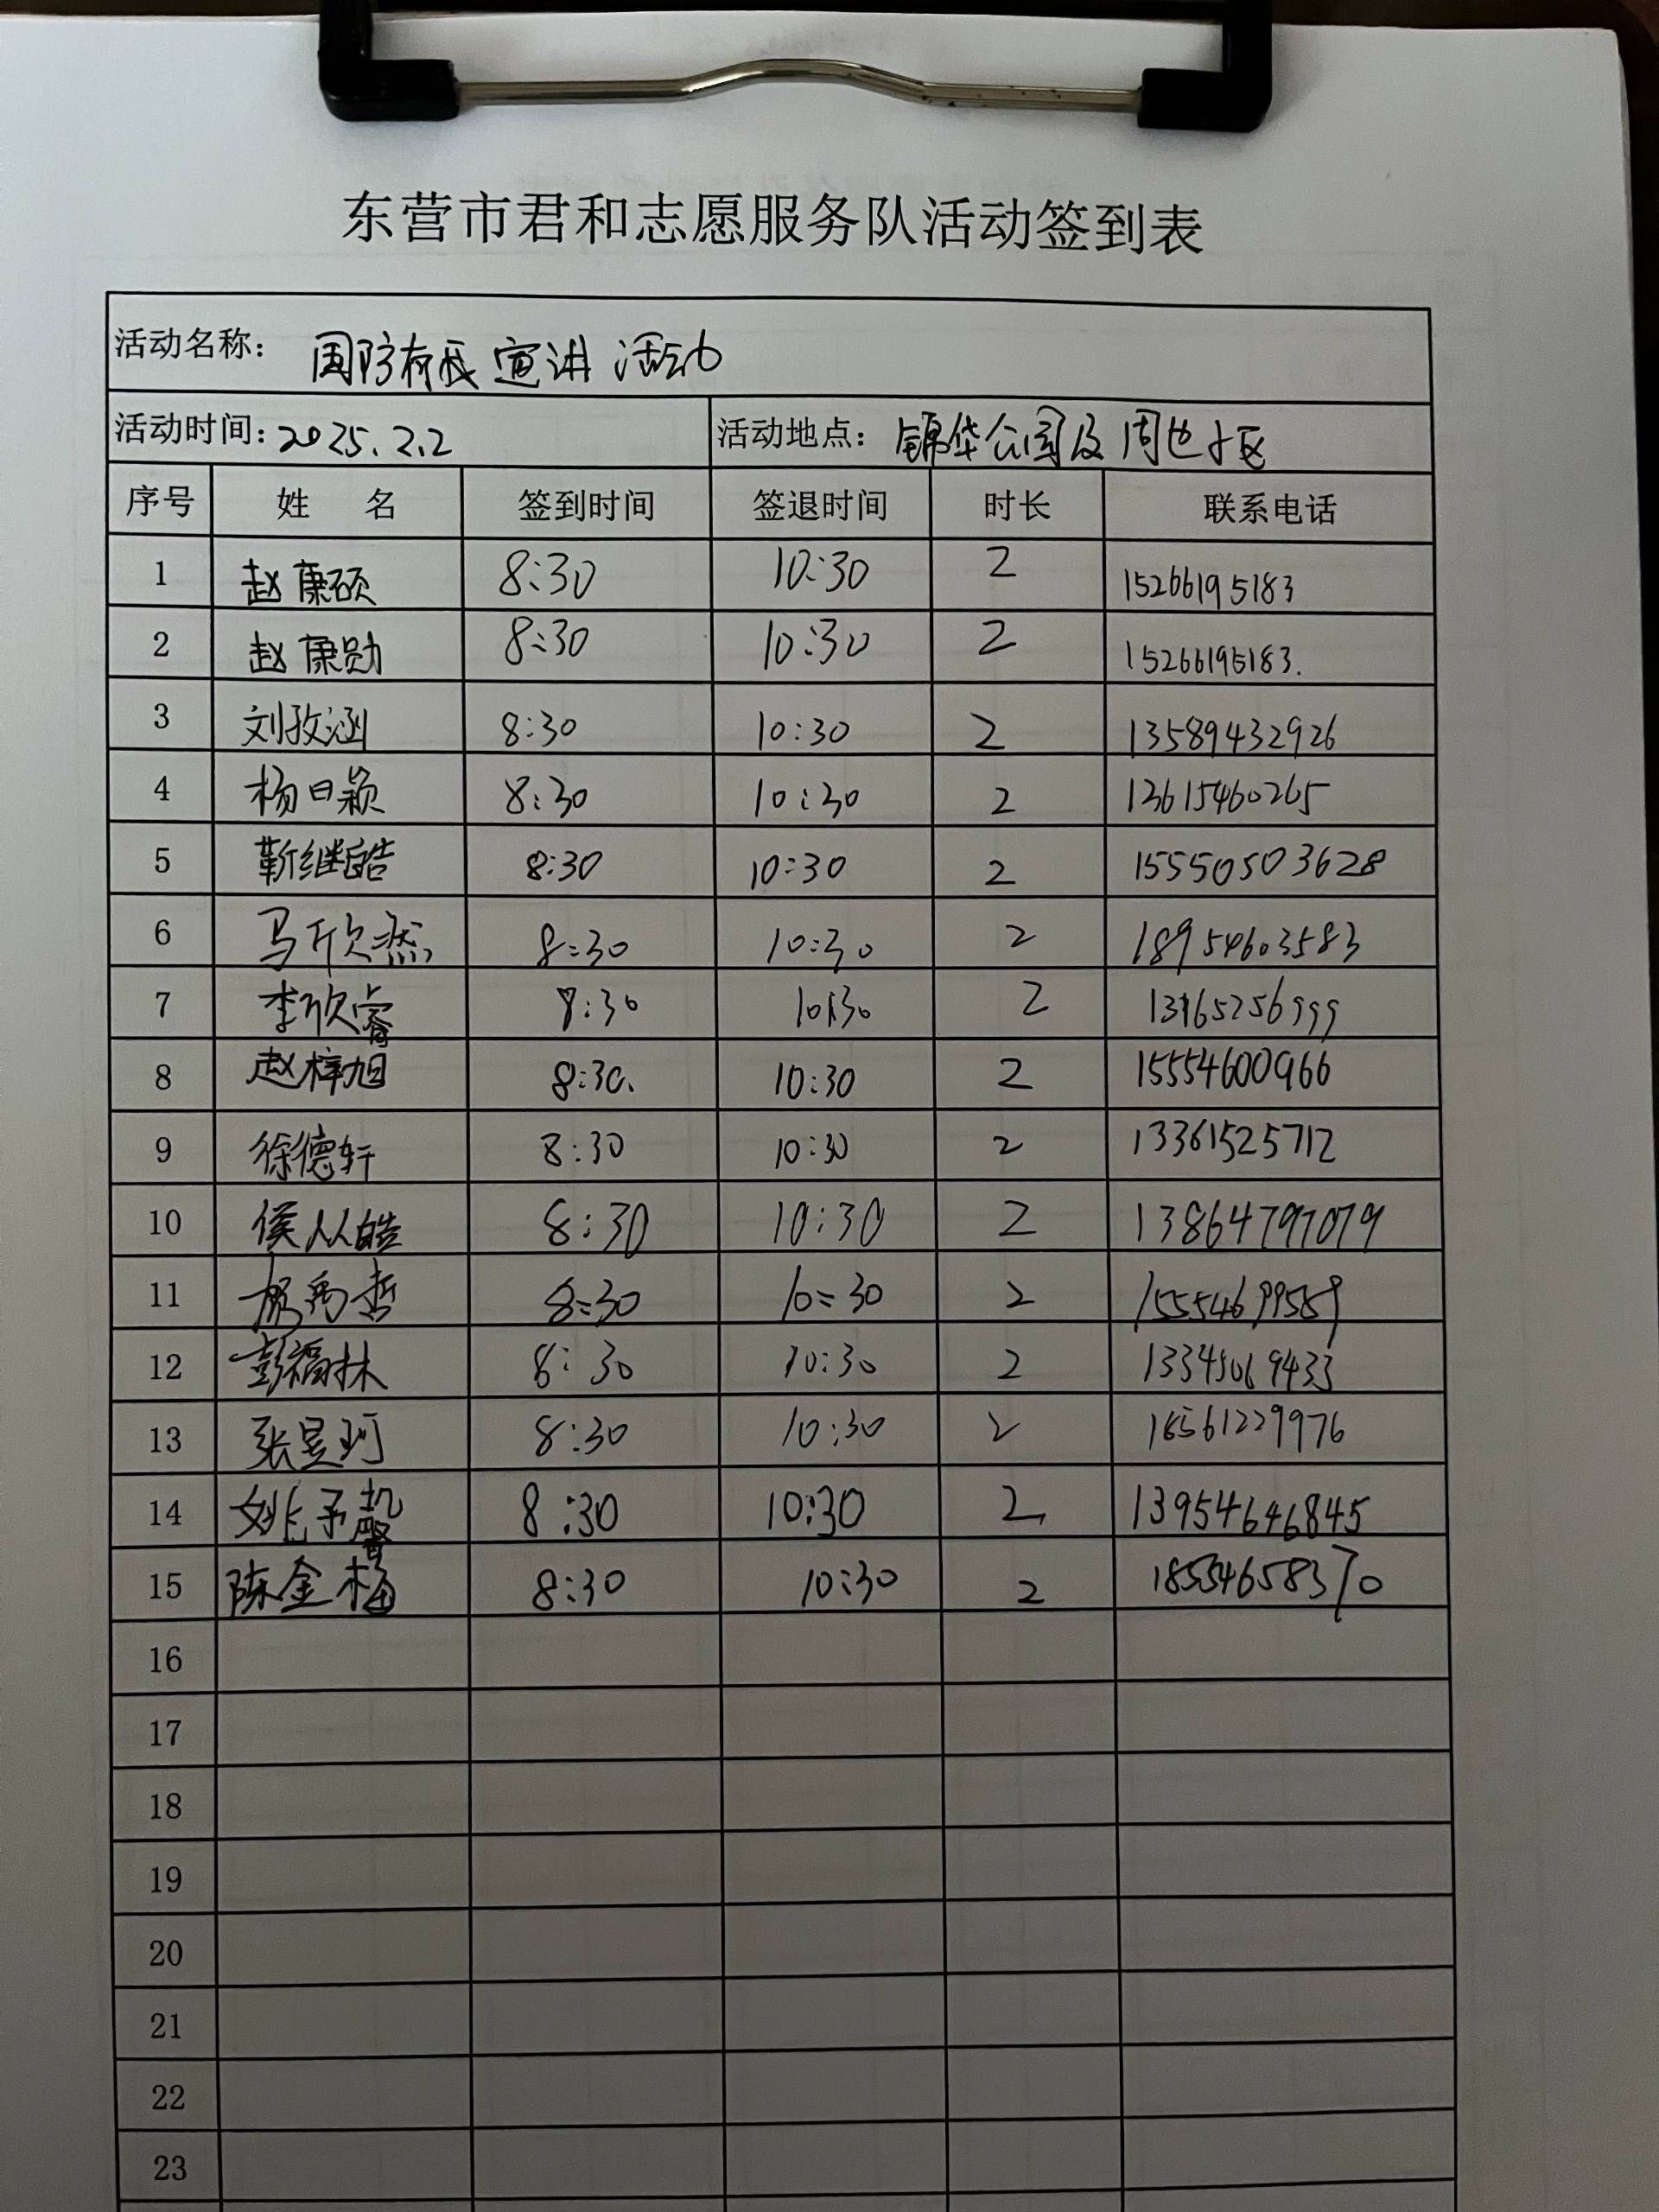 东营市君和志愿服务队活动签到表
活动名称： 国防有我宣讲活动
活动时间：2025.2.2 活动地点：锦华公园及周边小区
序号 姓 名 签到时间 签退时间 时长 联系电话
1 赵康硕 8:30 10:30 2 15266195183
2 赵康勋 8:30 10:30 2 15266195183.
3 刘孜涵 8:30 10:30 2 13589432926
4 杨日颖 8:30 10:30 2 13615460265
5 靳继皓 8:30 10:30 2 15550503628
6 马欣然 8:30 10:30 2 18954603583
7 李欣睿 8:30 10:30 2
8 赵梓旭 8:30. 10:30 2 15554600966
9 徐德轩 8:30 10:30 2 13361525712
10 侯从皓 8:30 10:30 2 13864797079
11 杨禹哲 8:30 10:30 2 15554699589
12 彭福林 8:30 10:30 2
13 张昱珂 8:30 10:30 2 18561229976
14 姚予馨 8:30 10:30 2 13954646845
15 陈金梅 8:30 10:30 2 18554658370
16
17
18
19
20
21
22
23